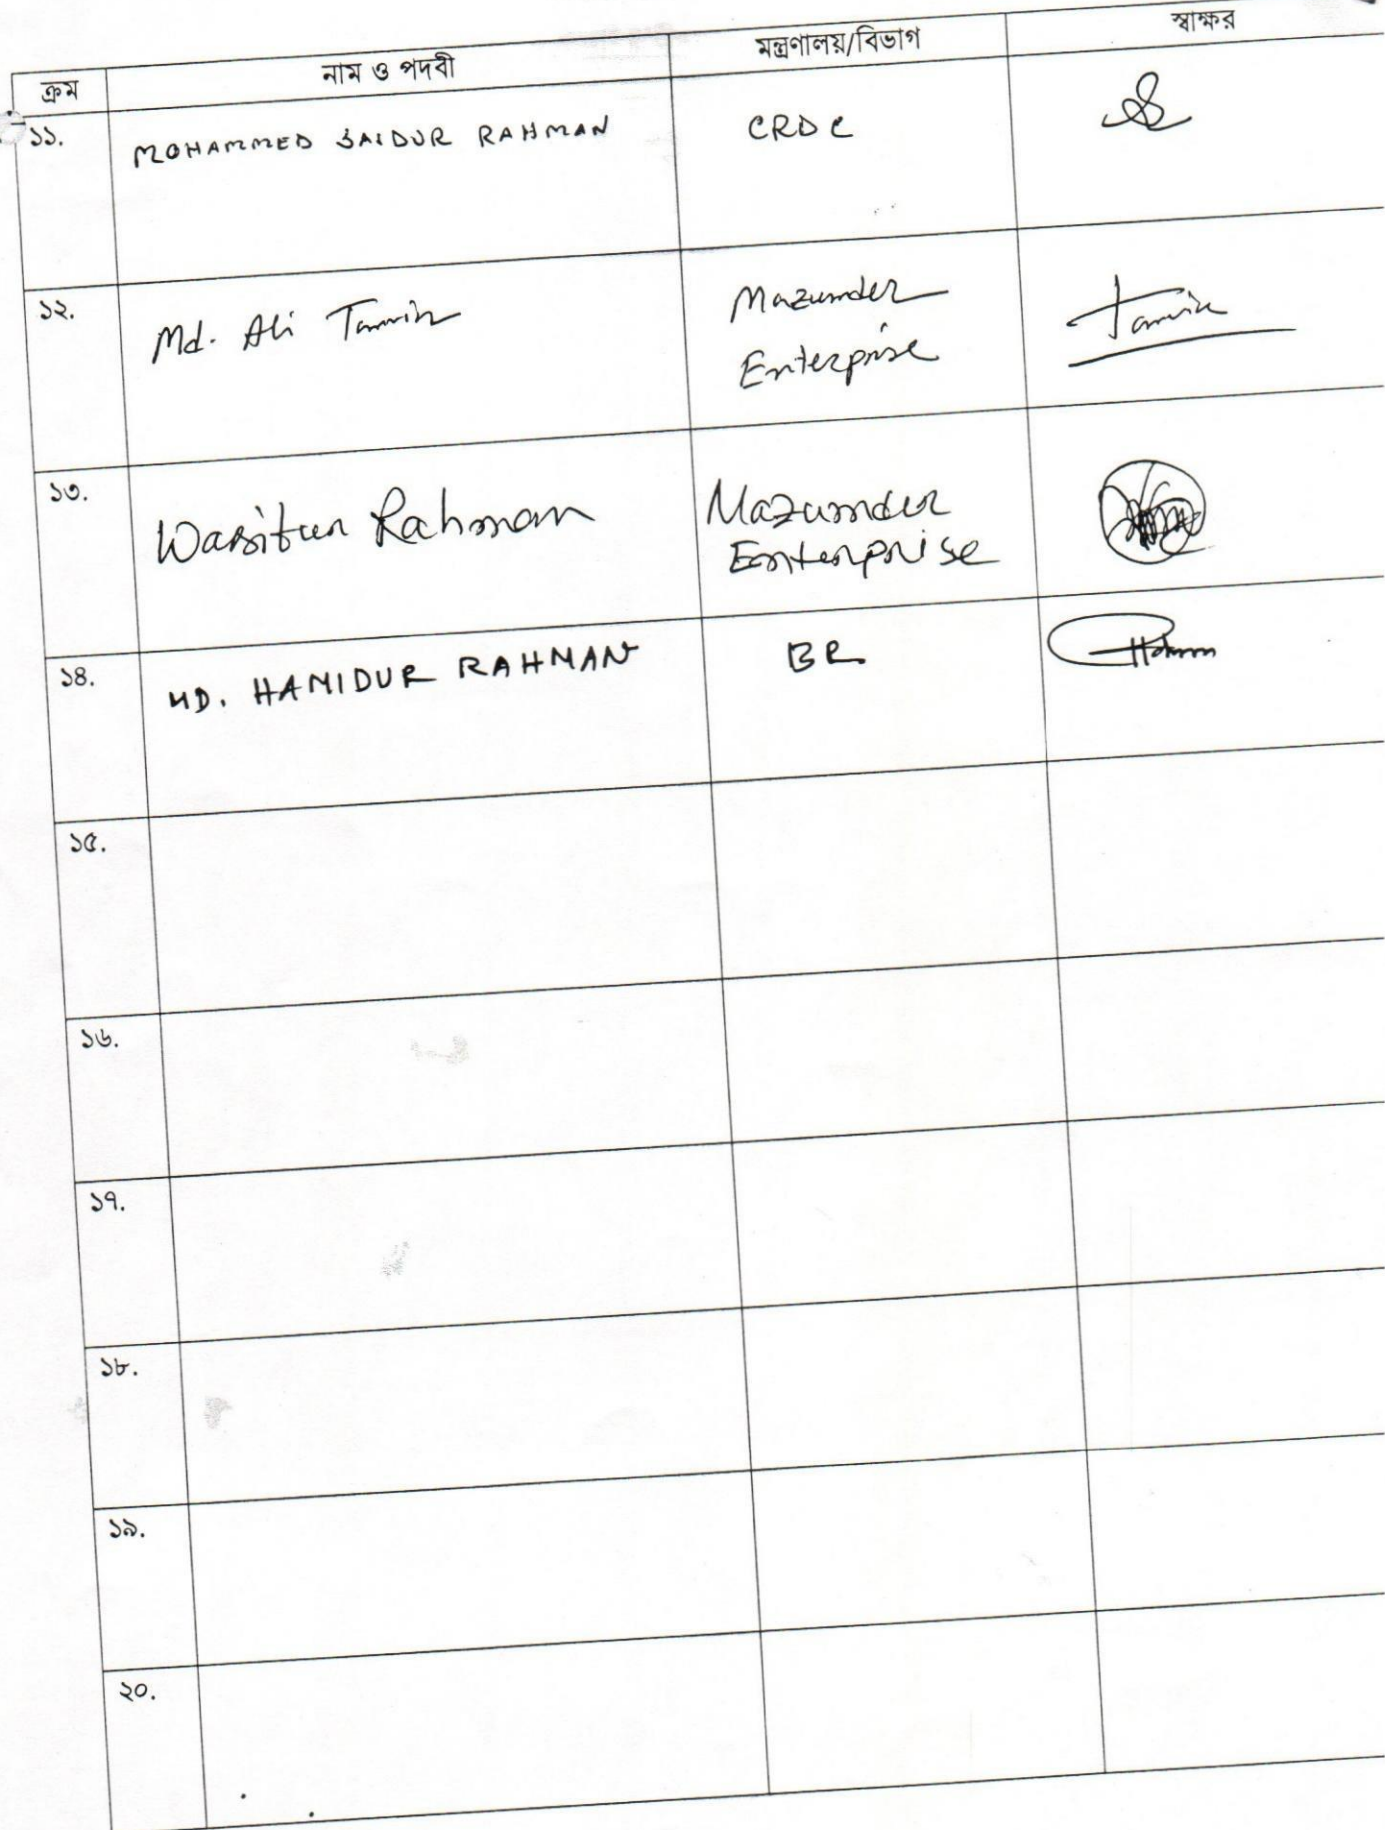 ক্রম নাম ও পদবী মন্ত্রণালয়/বিভাগ স্বাক্ষর
১১. MOHAMMED SAIDUR RAHMAN CRDC
১২. Md. Ali Tamim Mazumder
Enterprise
১৩. Wasitur Rahman Mazumder
Enterprise
১৪. MD. HAMIDUR RAHMAN BR
১৫.
১৬.
১৭.
১৮.
১৯.
২০.